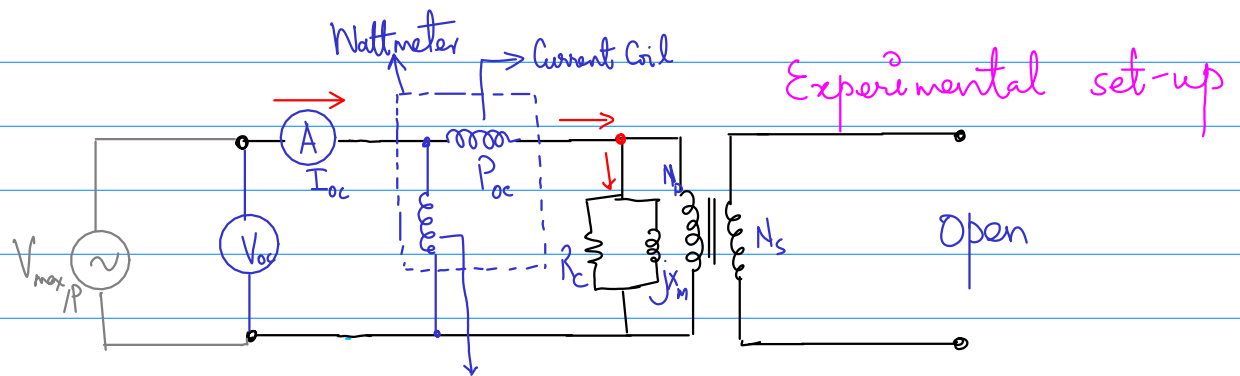 Wattmeter
Current Coil
Experimental set-up
A
I_oc
P_oc
N_p
V_oc
R_c
jx_M
N_s
Open
V_max/P